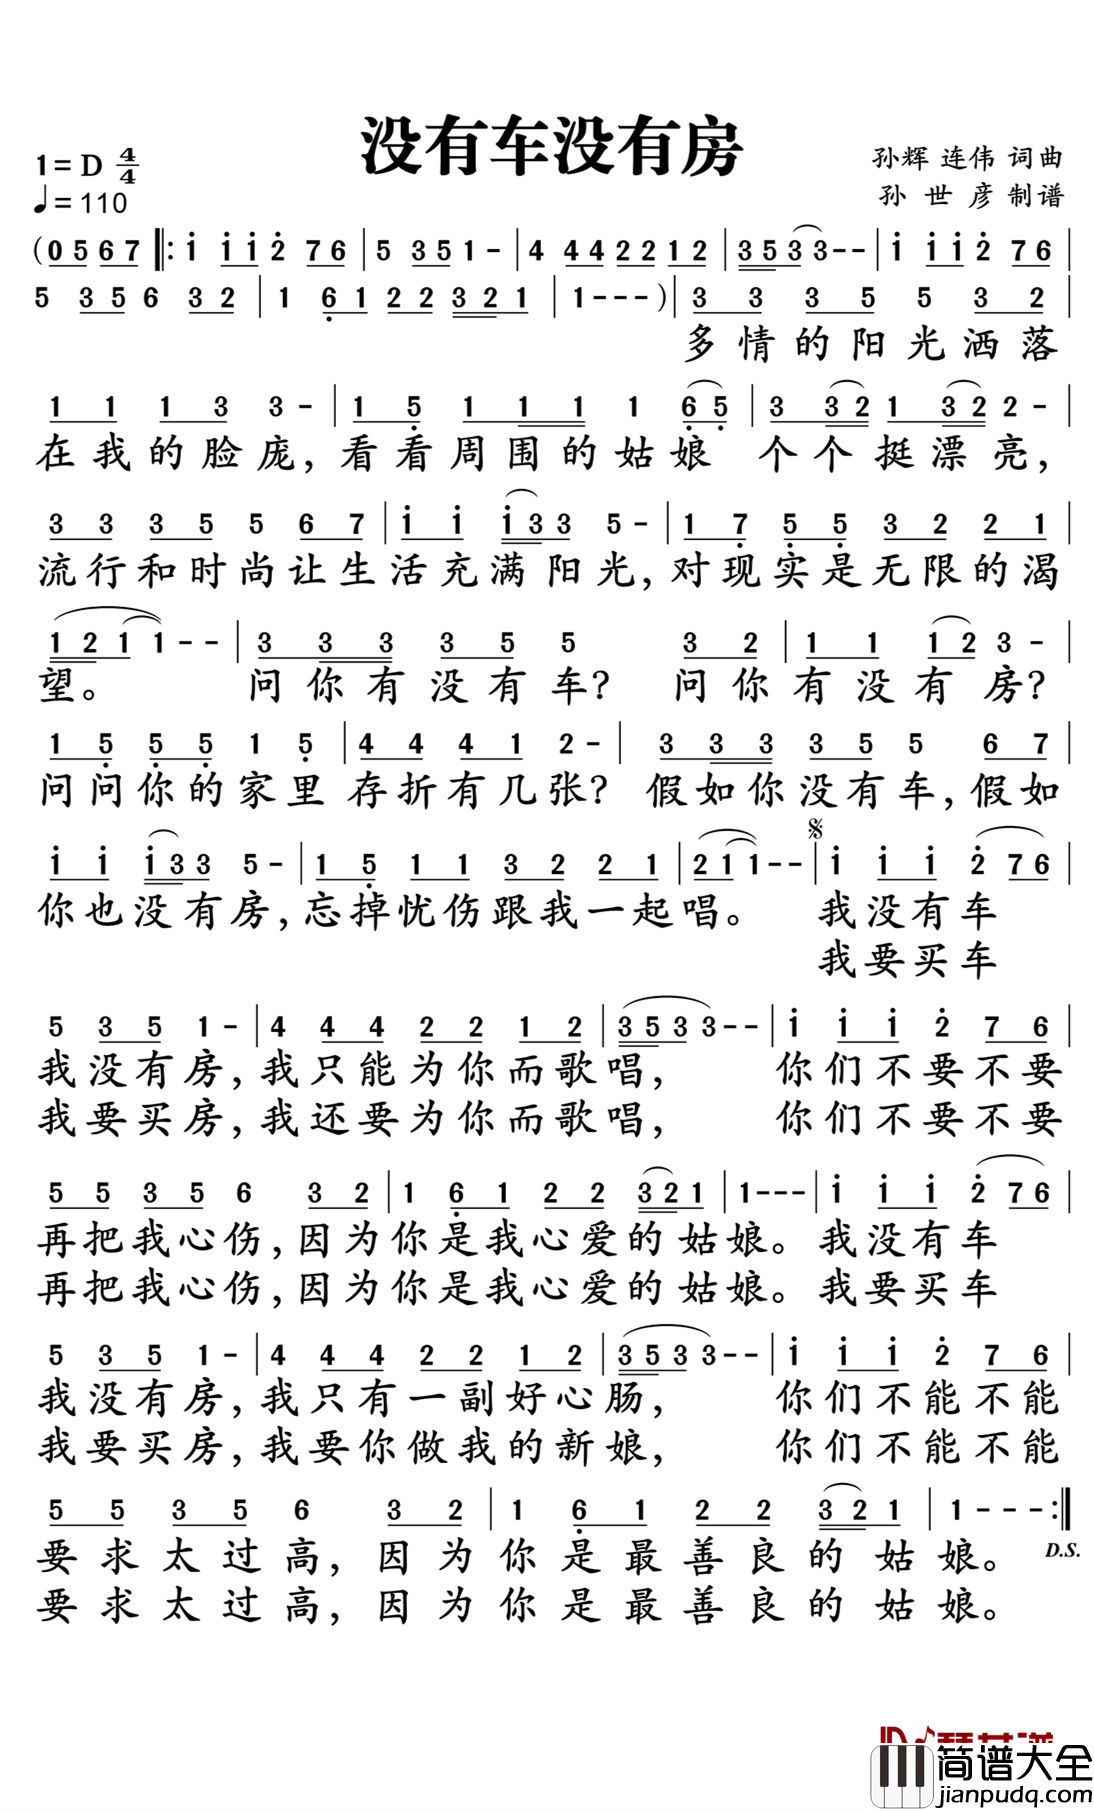 没有车没有房
1=D 4/4
孙辉 连伟 词曲
♩=110
孙世彦 制谱
(0 5 6 7 ‖: i i i 2̇ 7 6 | 5 3 5 1 - | 4 4 4 2 2 1 2 | 3 5 3 3 - - | i i i 2̇ 7 6 |
5 3 5 6 3 2 | 1 6̣ 1 2 2 3 2 1 | 1 - - - ) | 3 3 3 5 5 3 2 |
多情的阳光洒落
1 1 1 3 3 - | 1 5̣ 1 1 1 1 6̣ 5̣ | 3 3 2 1 3 2 2 - |
在我的脸庞，看看周围的姑娘 个个挺漂亮，
3 3 3 5 5 6 7 | i i i 3 3 5 - | 1 7̣ 5̣ 5̣ 3 2 2 1 |
流行和时尚让生活充满阳光，对现实是无限的渴
1 2 1 1 - - | 3 3 3 3 5 5 3 2 | 1 1 1 2 3 - |
望。 问你有没有车？ 问你有没有房？
1 5̣ 5̣ 5̣ 1 5̣ | 4 4 4 1 2 - | 3 3 3 3 5 5 6 7 |
问问你的家里存折有几张？ 假如你没有车，假如
i i i 3 3 5 - | 1 5̣ 1 1 3 2 2 1 | 2 1 1 - - | i i i 2̇ 7 6 |
你也没有房，忘掉忧伤跟我一起唱。 我没有车
我要买车
5 3 5 1 - | 4 4 4 2 2 1 2 | 3 5 3 3 - - | i i i 2̇ 7 6 |
我没有房，我只能为你而歌唱， 你们不要不要
我要买房，我还要为你而歌唱， 你们不要不要
5 5 3 5 6 3 2 | 1 6̣ 1 2 2 3 2 1 | 1 - - - | i i i 2̇ 7 6 |
再把我心伤，因为你是我心爱的姑娘。我没有车
再把我心伤，因为你是我心爱的姑娘。我要买车
5 3 5 1 - | 4 4 4 2 2 1 2 | 3 5 3 3 - - | i i i 2̇ 7 6 |
我没有房，我只有一副好心肠， 你们不能不能
我要买房，我要你做我的新娘， 你们不能不能
5 5 3 5 6 3 2 | 1 6̣ 1 2 2 3 2 1 | 1 - - - :‖
要求太过高，因为你是最善良的姑娘。 D.S.
要求太过高，因为你是最善良的姑娘。
简谱大全
jianpudq.com